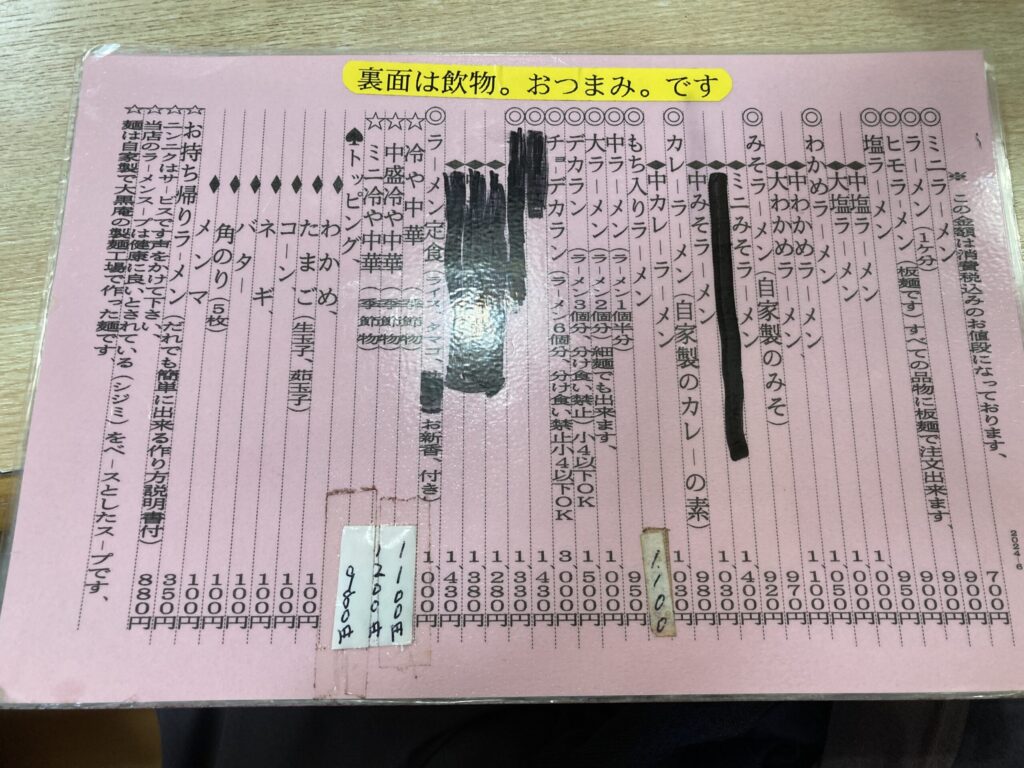 裏面は飲物。おつまみ。です
2024.6
※この金額は消費税込みのお値段になっております、
◎ミニラーメン
◎ラーメン(1個分)
◎ヒモラーメン(板麺です)すべての品物に板麺で注文出来ます、
◎塩ラーメン
◆中塩ラーメン
◆大塩ラーメン
◎わかめラーメン
◆中わかめラーメン
◆大わかめラーメン
◎みそラーメン(自家製のみそ)
◆ミニみそラーメン
◆中みそラーメン
◎カレーラーメン(自家製のカレーの素)
◆中カレーラーメン
◎もち入りラーメン
◎中ラーメン(ラーメン1個半分)
◎大ラーメン(ラーメン2個分)細麺でも出来ます、
◎デカラン(ラーメン3個分、分け食い禁止)小4以下OK
◎チョーデカラン(ラーメン6個分、分け食い禁止小4以下OK
◎ラーメン定食(ライス、タマゴ、お新香、付き)
☆冷や中華(季節物)
☆中盛冷や中華(季節物)
☆ミニ冷や中華(季節物)
♠トッピング、
◆わかめ、
◆たまご(生玉子、茹玉子)
◆コーン
◆ネギ、
◆バター
◆角のり(5枚)
◆メンマ
☆お持ち帰りラーメン(だれでも簡単に出来る作り方説明書付)
☆ニンニクはサービスです声をかけて下さい、
☆当店のラーメンスープは健康に良いとされている(シジミ)をベースとしたスープです、
☆麺は自家製で大黒庵の製麺工場で作った麺です、
700円
900円
900円
900円
950円
1,000円
1,050円
1,100円
970円
920円
1,400円
980円
1,030円
1100
950円
1,000円
1,500円
3,000円
1,430円
1,330円
1,280円
1,380円
1,430円
1,000円
1100円
1200円
980円
100円
100円
100円
100円
100円
100円
350円
880円